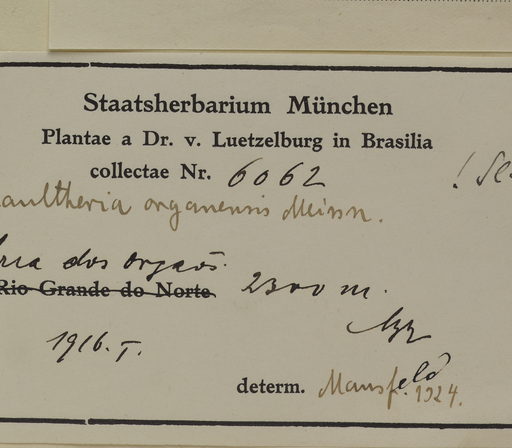 Staatsherbarium München
Plantae a Dr. v. Luetzelburg in Brasilia
collectae Nr. 6062
aultheria organensis Meissn.
rra dos orgaõs.
Rio Grande do Norte. 2300 m.
1916. I.
determ. Mansfeld 1924.